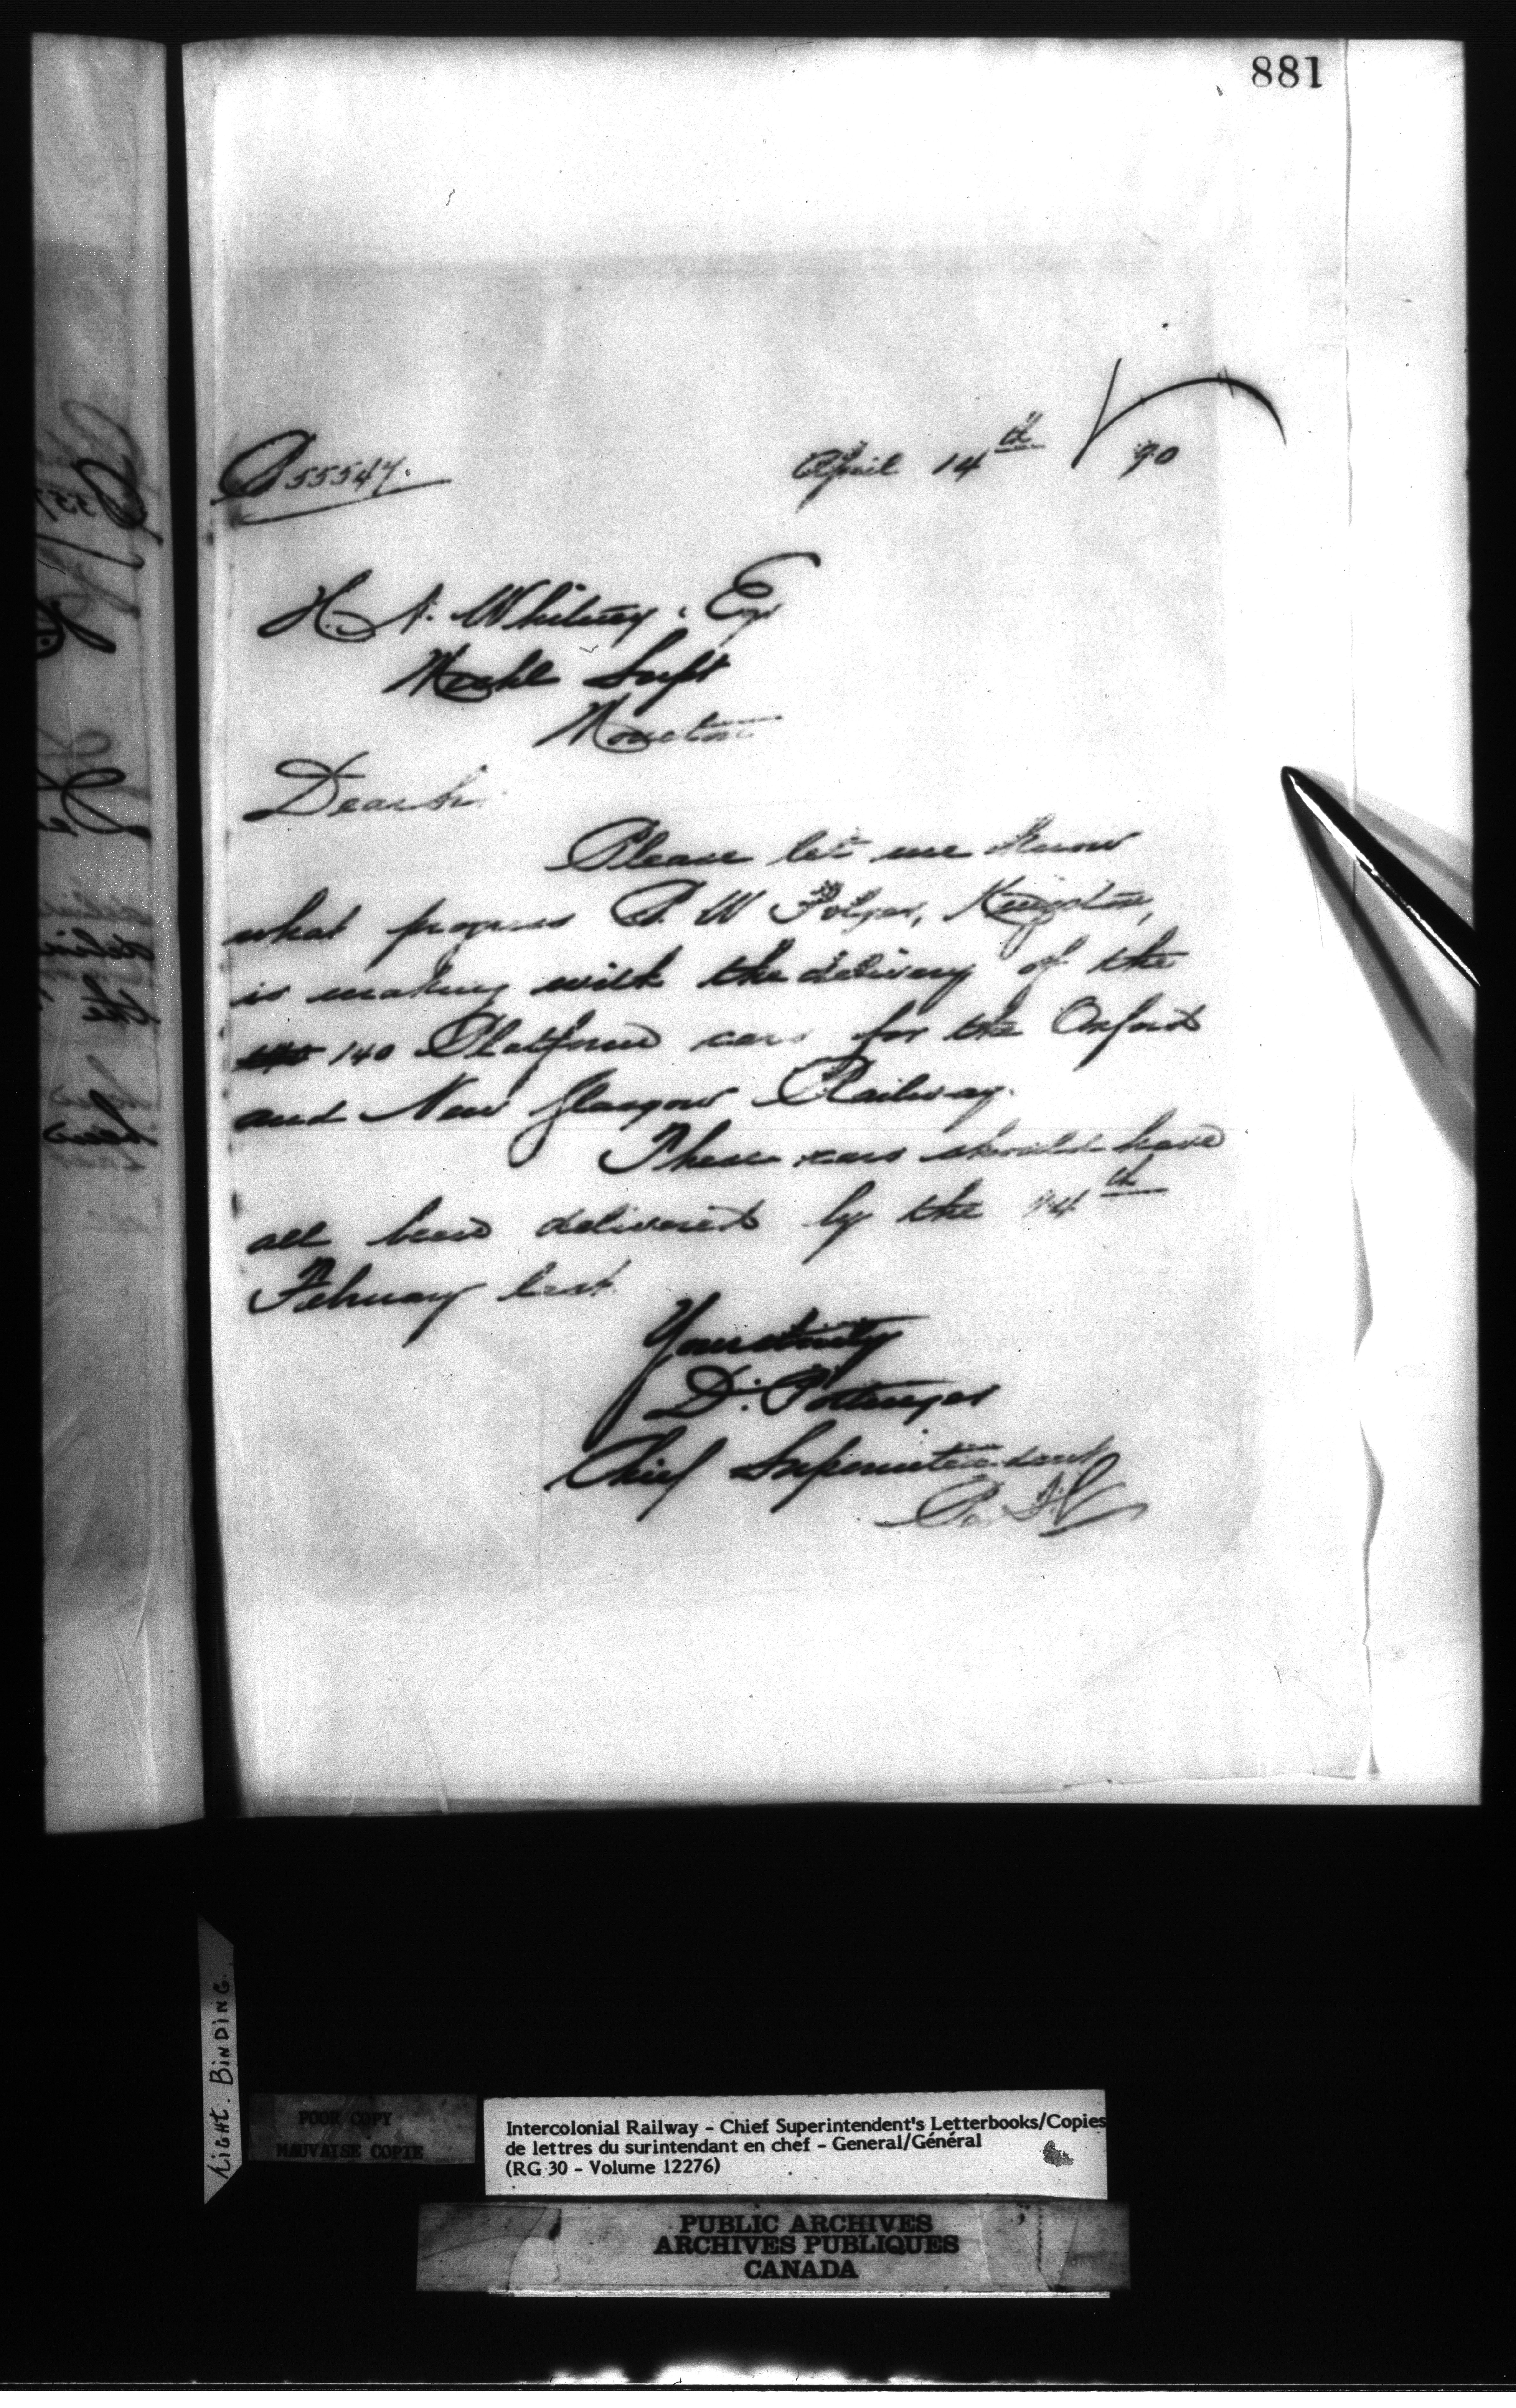 881
P 55547.
April 14th 90
H. A. Whitney. Esq
Mechl Supt
Moncton
Dear Sir.
Please let me know
what progress B. W Folger, Kingston,
is making with the delivery of the
140 Platform cars for the Oxford
and New Glasgow Railway.
These cars should have
all been delivered by the 14th
February last.
Yours truly
D. Pottinger
Chief Superintendent
Per
LIGHT. BINDING.
POOR COPY
MAUVAISE COPIE
Intercolonial Railway - Chief Superintendent's Letterbooks/Copies
de lettres du surintendant en chef - General/Général
(RG 30 - Volume 12276)
PUBLIC ARCHIVES
ARCHIVES PUBLIQUES
CANADA